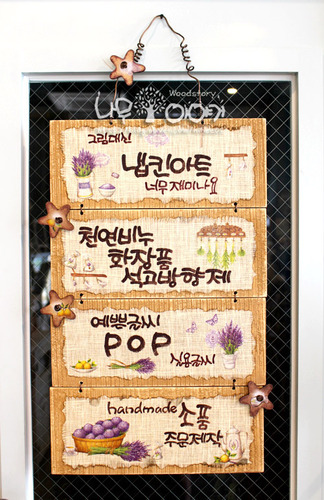 Woodstory
나무이야기
그림대신
냅킨아트
너무재미나요
천연비누
화장품
석고방향제
예쁜글씨
POP
실용글씨
handmade 소품
주문제작